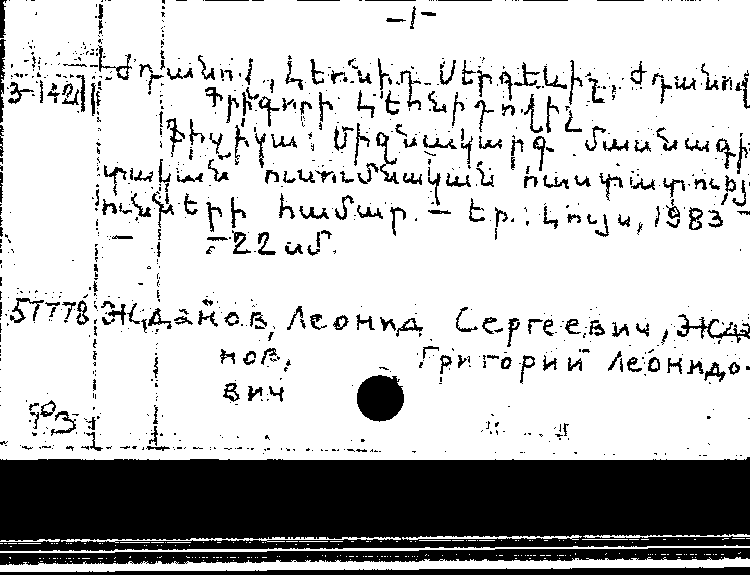 –1–
Ժդանով, Լեոնիդ Սերգեևիչ, Ժդանով
Գրիգորի Լեոնիդովիչ
Ֆիզիկա: Միջնակարգ մասնագի
տական ուսումնական հաստատությ
ունների համար. – Եր.: Լույս, 1983 –
– 22 սմ.
57778 Жданов, Леонид Сергеевич, Жда
нов, Григорий Леонидо-
вич